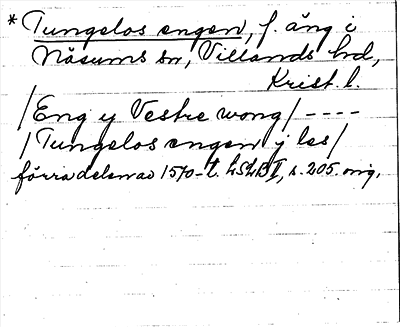 * Tungelos engen, f. äng i
Näsums sn, Villands hd,
Krist. l.
/Eng y Vestre wong/ ----
/Tungelos engen y les/
förra delen av 1570-t. LSLB II, s. 205. orig.